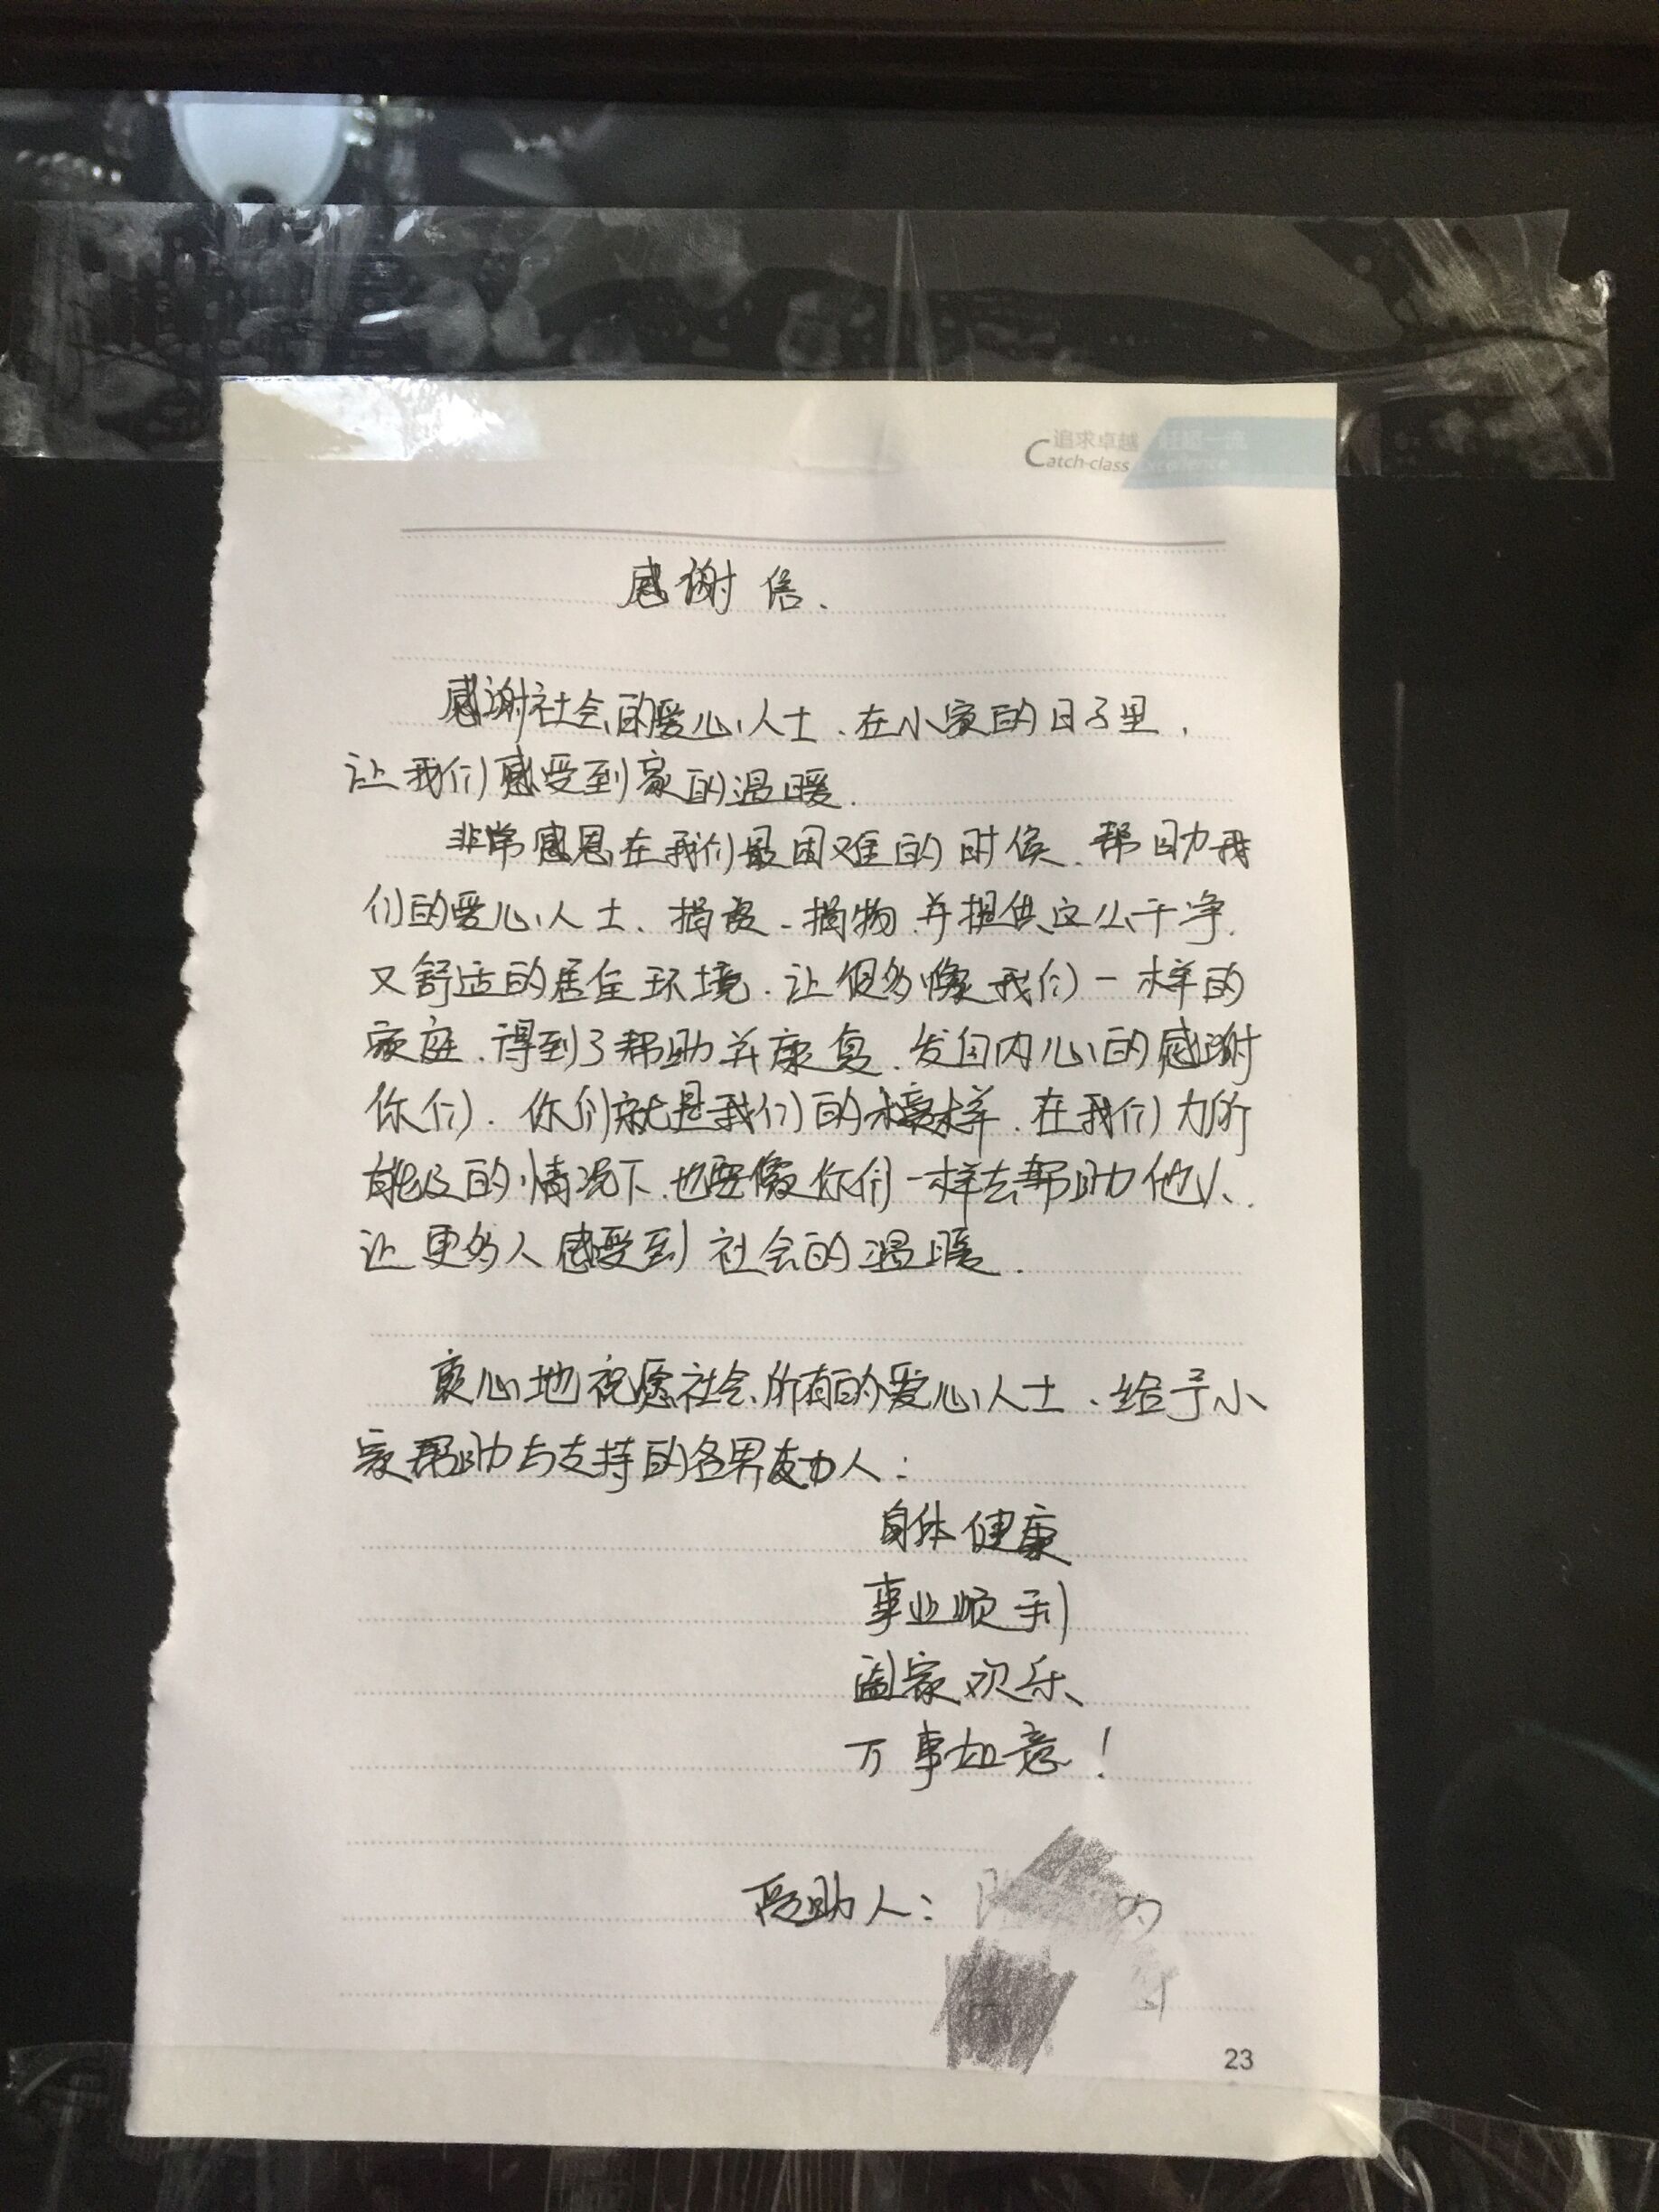 追求卓越
Catch-class Excellence
感谢信.
感谢社会的爱心人士.在小家的日子里,
让我们感受到家的温暖.
非常感恩在我们最困难的时候.帮助我
们的爱心人士、捐资、捐物.并提供这么干净.
又舒适的居住环境.让很多像我们一样的
家庭.得到了帮助并康复.发自内心的感谢
你们.你们就是我们的榜样.在我们力所
能及的情况下.也要像你们一样去帮助他人.
让更多人感受到社会的温暖.
衷心地祝愿社会所有的爱心人士、给予小
家帮助与支持的各界友人:
身体健康
事业顺利
阖家欢乐、
万事如意!
受助人:
23